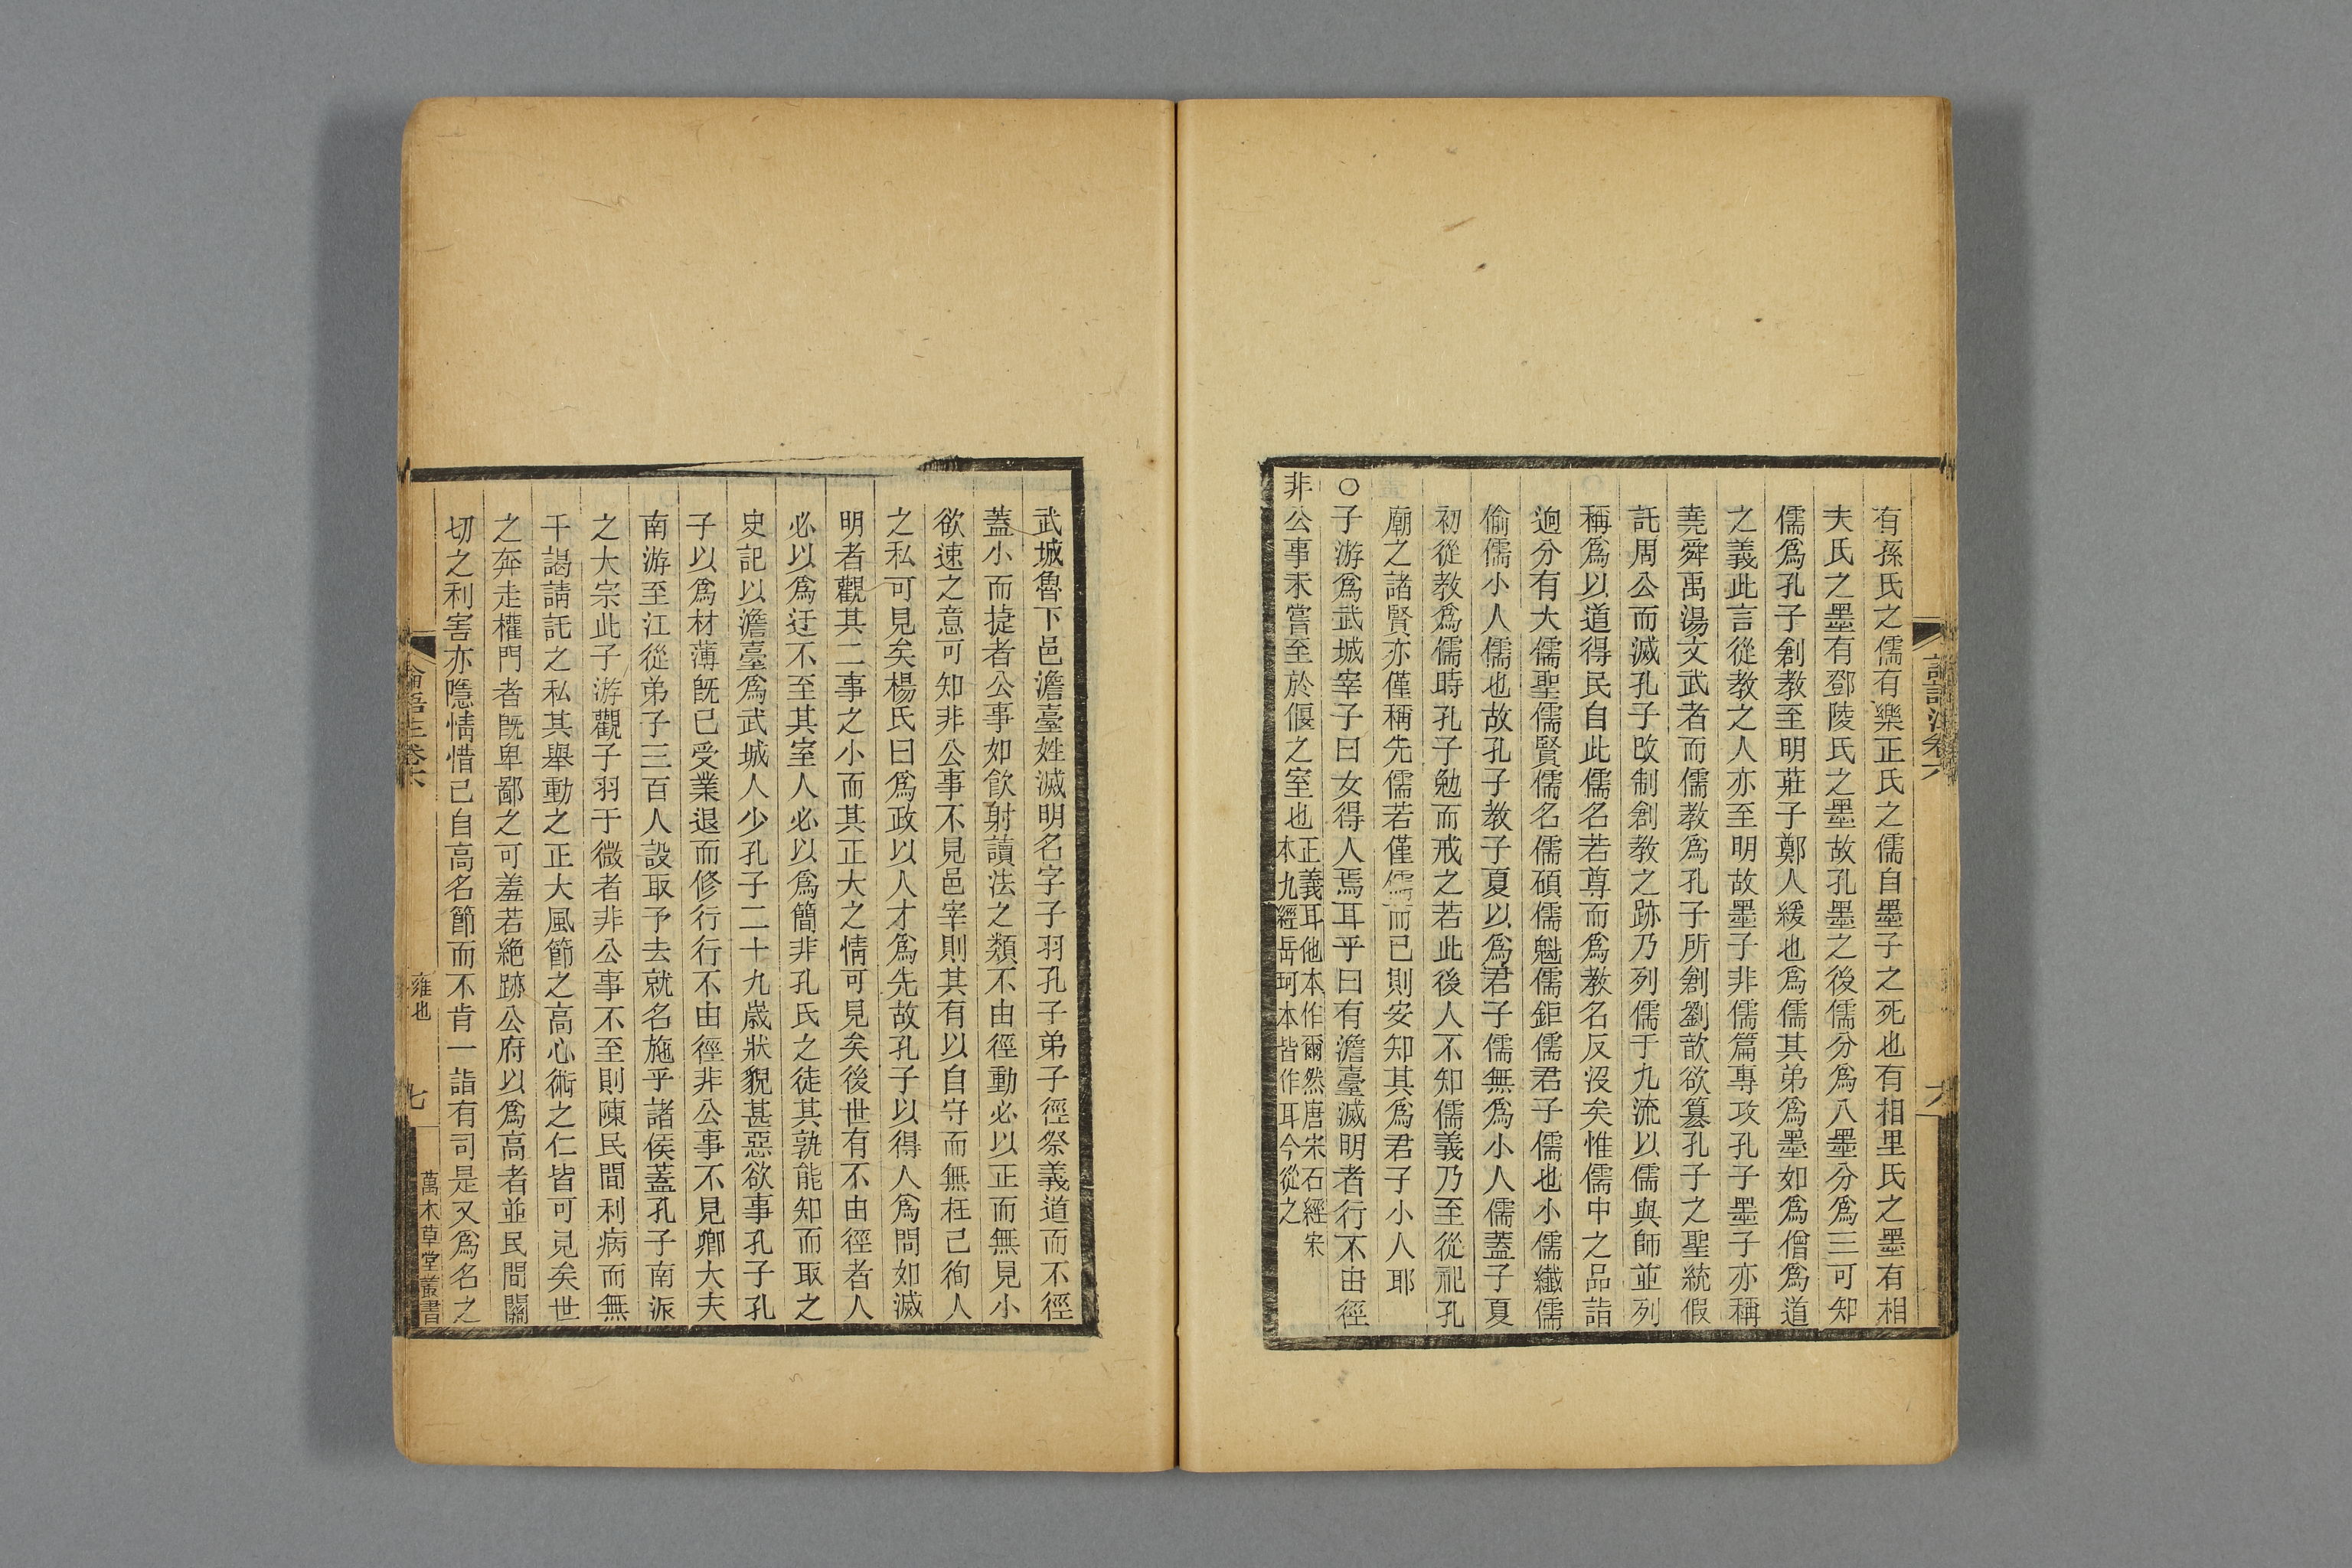 有孫氏之儒有樂正氏之儒自墨子之死也有相里氏之墨有相
夫氏之墨有鄧陵氏之墨故孔墨之後儒分爲八墨分爲三可知
儒爲孔子創教至明莊子鄭人緩也爲儒其弟爲墨如爲僧爲道
之義此言從教之人亦至明故墨子非儒篇專攻孔子墨子亦稱
堯舜禹湯文武者而儒教爲孔子所創劉歆欲篡孔子之聖統假
託周公而滅孔子改制創教之跡乃列儒于九流以儒與師並列
稱爲以道得民自此儒名若尊而爲教名反沒矣惟儒中之品詣
逈分有大儒聖儒賢儒名儒碩儒魁儒鉅儒君子儒也小儒纖儒
偷儒小人儒也故孔子教子夏以爲君子儒無爲小人儒蓋子夏
初從教爲儒時孔子勉而戒之若此後人不知儒義乃至從祀孔
廟之諸賢亦僅稱先儒若僅儒而已則安知其爲君子小人耶
○子游爲武城宰子曰女得人焉耳乎曰有澹臺滅明者行不由徑
非公事未嘗至於偃之室也
正義耳他本作爾然唐宋石經宋
本九經岳珂本皆作耳今從之
六
武城魯下邑澹臺姓滅明名字子羽孔子弟子徑祭義道而不徑
蓋小而捷者公事如飮射讀法之類不由徑動必以正而無見小
欲速之意可知非公事不見邑宰則其有以自守而無枉己徇人
之私可見矣楊氏曰爲政以人才爲先故孔子以得人爲問如滅
明者觀其二事之小而其正大之情可見矣後世有不由徑者人
必以爲迂不至其室人必以爲簡非孔氏之徒其孰能知而取之
史記以澹臺爲武城人少孔子二十九歲狀貌甚惡欲事孔子孔
子以爲材薄旣已受業退而修行行不由徑非公事不見卿大夫
南游至江從弟子三百人設取予去就名施乎諸侯蓋孔子南派
之大宗此子游觀子羽于微者非公事不至則陳民間利病而無
干謁請託之私其舉動之正大風節之高心術之仁皆可見矣世
之奔走權門者旣卑鄙之可羞若絕跡公府以爲高者並民間關
切之利害亦隱情惜己自高名節而不肯一詣有司是又爲名之
論語注卷六
雍也
七
萬木草堂叢書